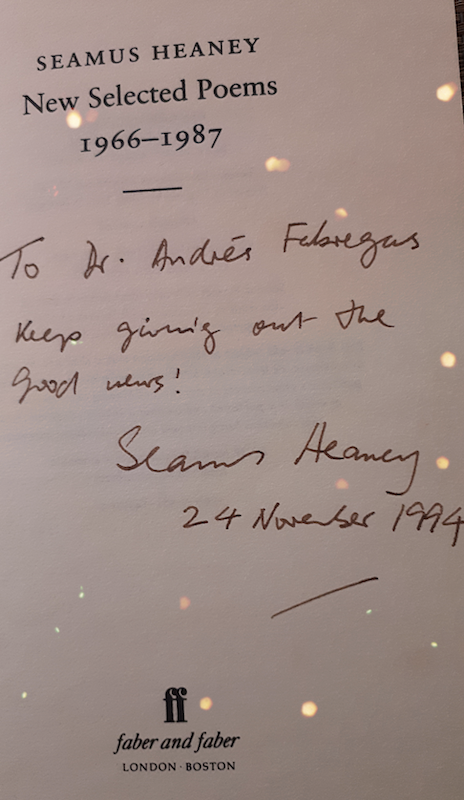 SEAMUS HEANEY
New Selected Poems
1966–1987
To Dr. Andrés Fabregas
Keep giving out the
good news!
Seamus Heaney
24 November 1994
ff
faber and faber
LONDON · BOSTON